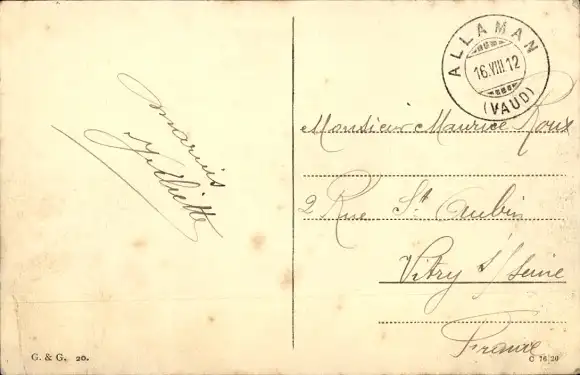 marius
Juliette
ALLAMAN
16.VIII.12
(VAUD)
Monsieur Maurice Roux
2 Rue St Aubin
Vitry s/Seine
France
G. & G. 20.